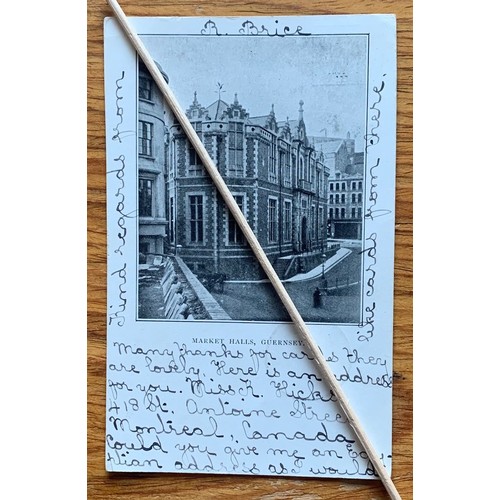 R. Brice
Kind regards from
like cards from here.
MARKET HALLS, GUERNSEY.
Many thanks for cards they
are lovely. Here is an address
for you. Miss K. Hicks
418 St. Antoine Street
Montreal, Canada
Could you give me an Egy-
ptian address as would